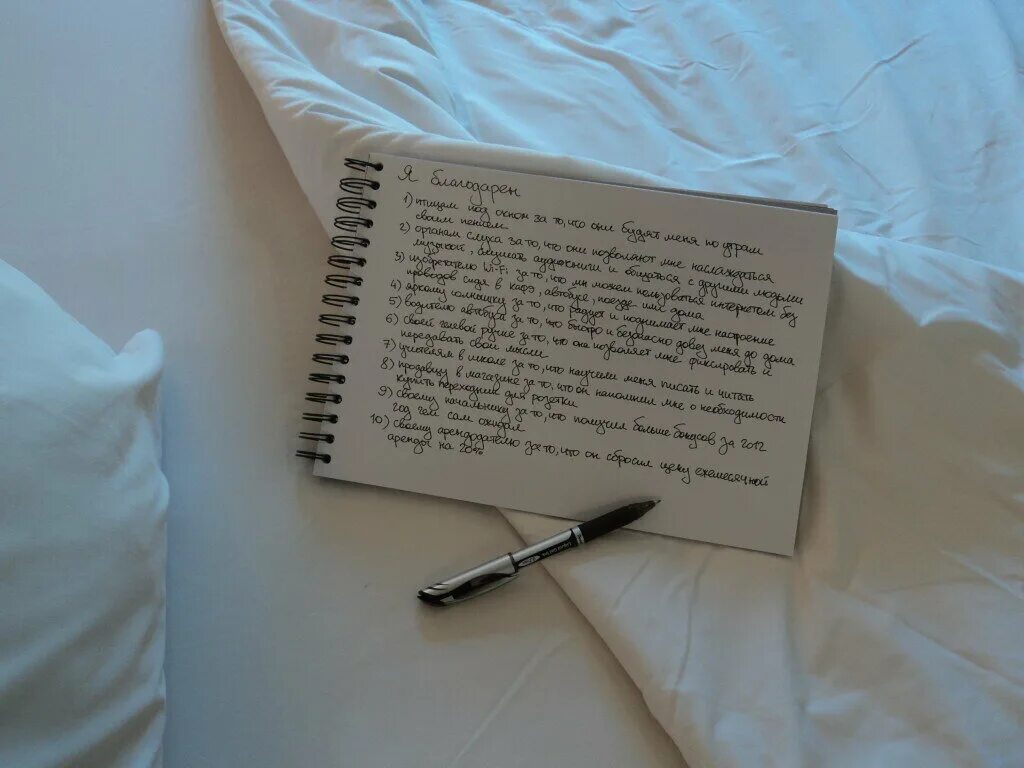 Я благодарен
1) птицам под окном за то, что они будят меня по утрам
своим пением
2) органам слуха за то, что они позволяют мне наслаждаться
музыкой, слушать аудиокниги и общаться с другими людьми
3) изобретателю Wi-Fi за то, что мы можем пользоваться интернетом без
проводов сидя в кафе, автобусе, поезде или дома
4) яркому солнышку за то, что радует и поднимает мне настроение
5) водителю автобуса за то, что быстро и безопасно довез меня до дома
6) своей гелевой ручке за то, что она позволяет мне фиксировать и
передавать свои мысли
7) учителям в школе за то, что научили меня писать и читать
8) продавцу в магазине за то, что он напомнил мне о необходимости
купить переходник для розетки
9) своему начальнику за то, что получил больше бонусов за 2012
год чем сам ожидал
10) своему арендодателю за то, что он сбросил цену ежемесячной
аренды на 20%